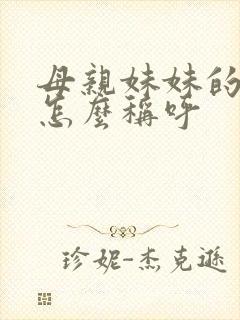 母親妹妹的
怎麼稱呼
珍妮-杰克遜